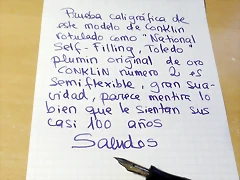 Prueba caligráfica de
este modelo de Conklin
rotulado como "National
Self-Filling, Toledo"
plumin original de oro
CONKLIN número 2 es
semiflexible, gran sua-
vidad, parece mentira lo
bien que le sientan sus
casi 100 años
Saludos